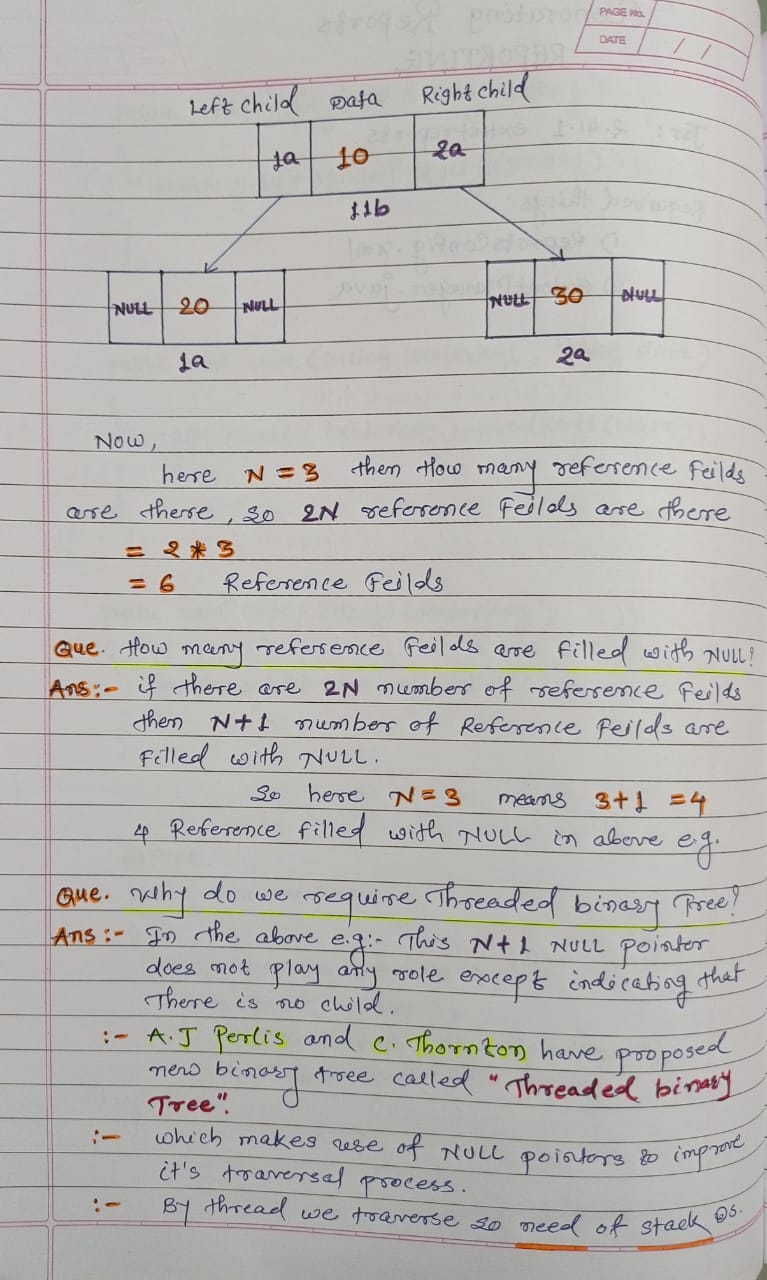 PAGE No.
DATE / /
Left child Data Right child
1a 10 2a
11b
NULL 20 NULL
NULL 30 NULL
1a
2a
Now,
here N = 3 then How many reference Feilds
are there, so 2N reference Feilds are there
= 2 * 3
= 6 Reference Feilds
Que. How many reference feilds are filled with NULL?
Ans:- if there are 2N number of reference Feilds
then N+1 number of Reference Feilds are
Filled with NULL.
So here N = 3 means 3+1 = 4
4 Reference filled with NULL in above e.g.
Que. Why do we require Threaded binary Tree?
Ans:- In the above e.g:- This N+1 NULL pointer
does not play any role except indicating that
There is no child.
:- A.J Perlis and C. Thornton have proposed
new binary tree called "Threaded binary
Tree".
:- which makes use of NULL pointers to improve
it's traversal process.
:- By thread we traverse so need of stack